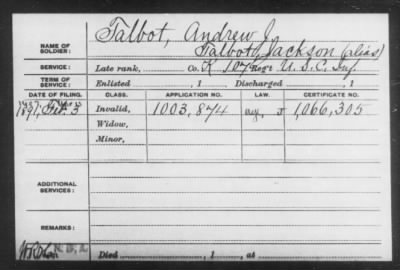 NAME OF SOLDIER: Talbot, Andrew J.
Talbot, Jackson (alias)
SERVICE: Late rank, Co. K 107 Reg't U. S. C. Inf
TERM OF SERVICE: Enlisted , 1 Discharged , 1
DATE OF FILING. CLASS. APPLICATION NO. LAW. CERTIFICATE NO.
1891, Feb. 3 Invalid, 1003,874 1,066,305
Widow,
Minor,
ADDITIONAL SERVICES:
REMARKS:
Died , 1 , at